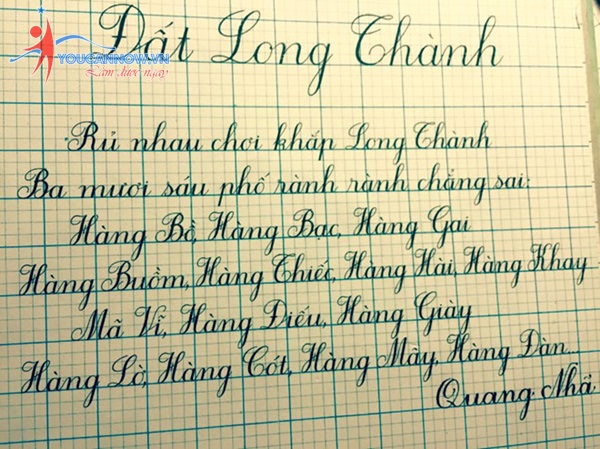 Đất Long Thành
YOUCANNOW.VN
Làm được ngay
Rủ nhau chơi khắp Long Thành
Ba mươi sáu phố rành rành chẳng sai:
Hàng Bồ, Hàng Bạc, Hàng Gai
Hàng Buồm, Hàng Thiếc, Hàng Hài, Hàng Khay
Mã Vĩ, Hàng Điếu, Hàng Giày
Hàng Lờ, Hàng Cót, Hàng Mây, Hàng Đàn...
Quang Nhã.